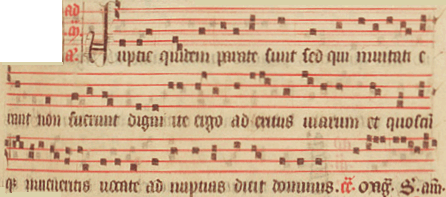 Nuptie quidem parate sunt sed qui inuitati e
rant non fuerunt digni ite ergo ad exitus uiarum et quoscu
q; inueneritis uocate ad nuptias dicit dominus.